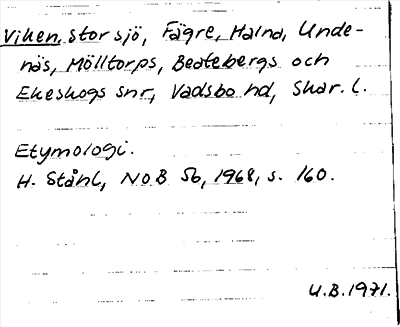 Viken, stor sjö, Fägre, Halna, Unde-
näs, Mölltorps, Beatebergs och
Ekeskogs snr, Vadsbo hd, Skar. l.
Etymologi.
H. Ståhl, NoB 56, 1968, s. 160.
U.B. 1971.